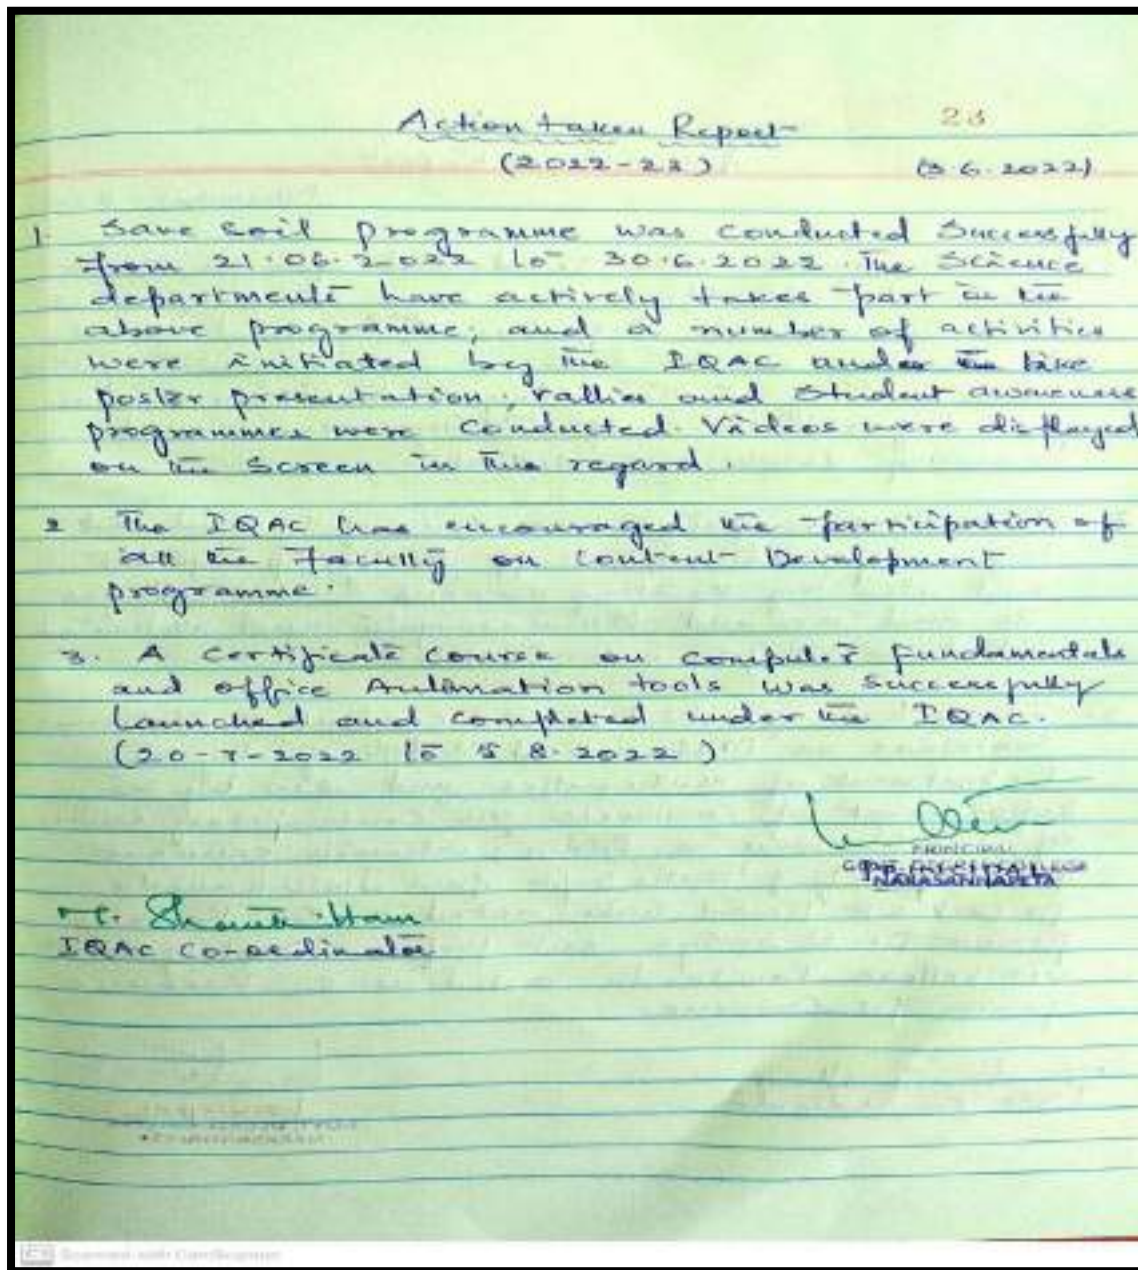 23
Action taken Report
(2022-23) (3.6.2022)
1. Save soil programme was conducted Successfully
from 21.06.2022 to 30.6.2022. The Science
departments have actively takes part in the
above programme, and a number of activities
were initiated by the IQAC like
poster presentation, rallies and Student awareness
programmes were conducted. Videos were displayed
on the Screen in this regard.
2 The IQAC has encouraged the participation of
all the Faculty on Content Development
programme.
3. A certificate course on computer fundamentals
and office Automation tools was successfully
Launched and completed under the IQAC.
(20-7-2022 to 5.8.2022)
PRINCIPAL
NARASANNAPETA
IQAC Co-ordinator
CS Scanned with CamScanner